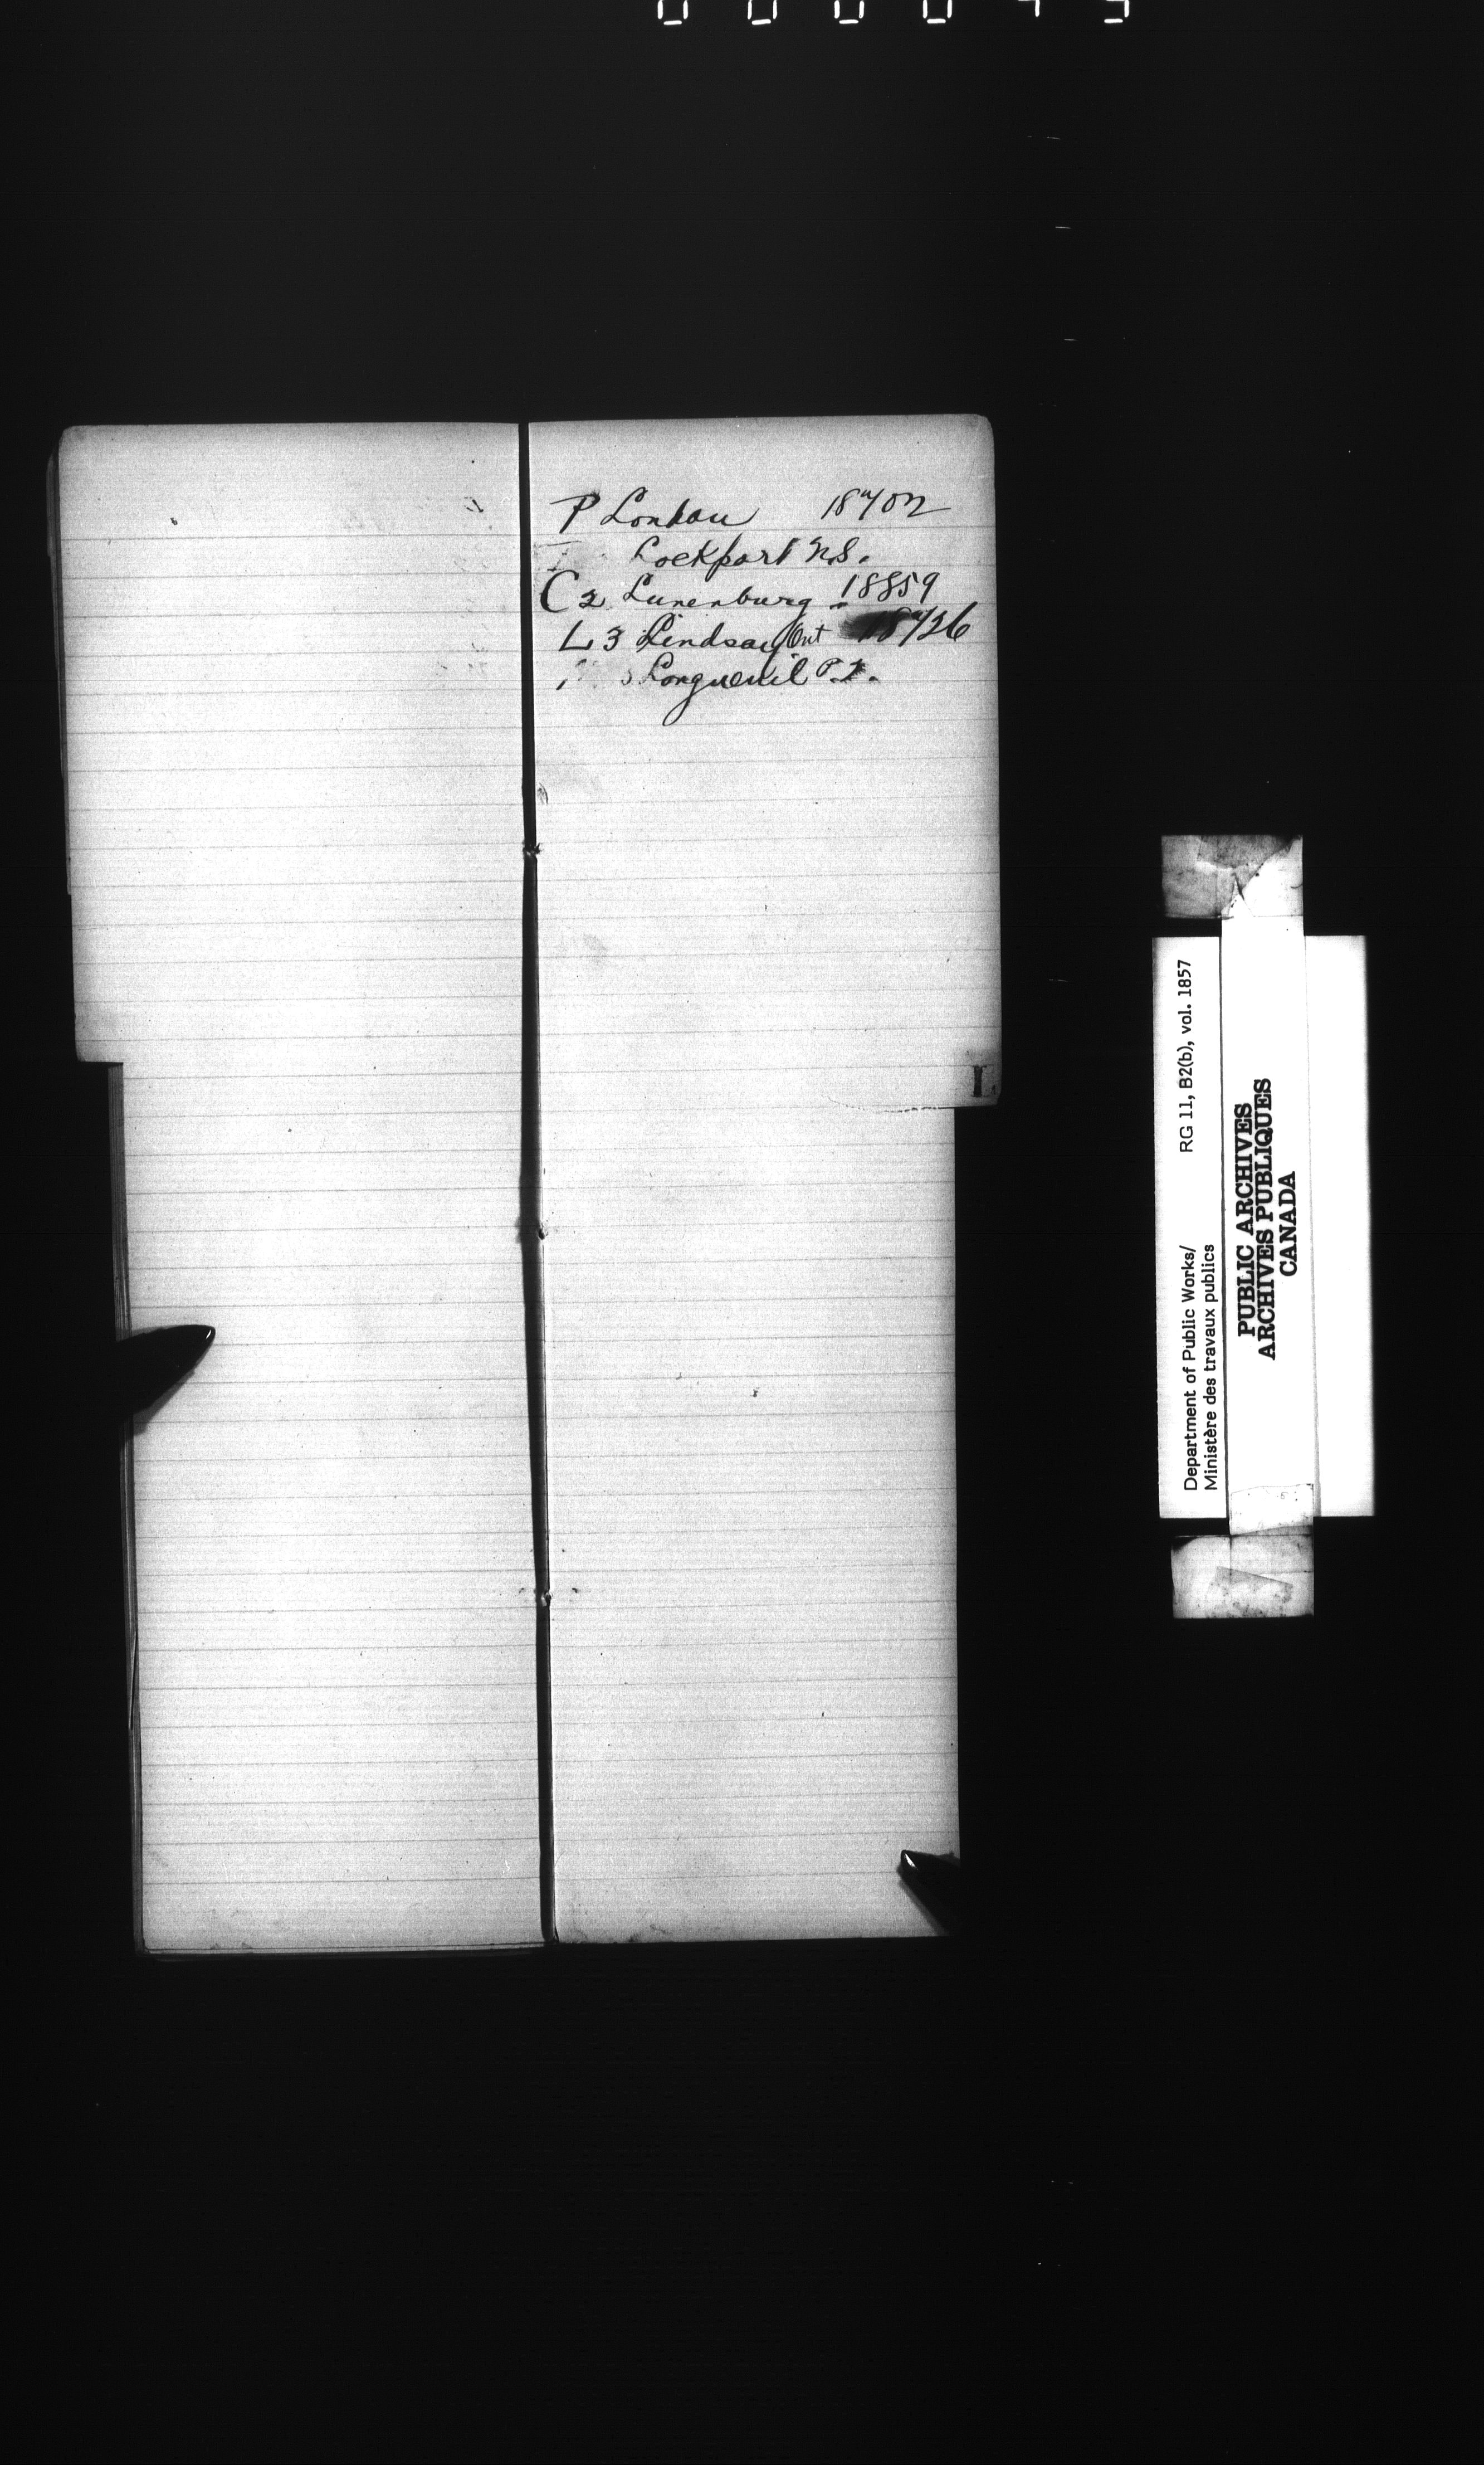 P London 18702
Lockport N.S.
C 2 Lunenburg 18859
L 3 Lindsay Ont 18726
Longueuil P.Q.
L
Department of Public Works/ RG 11, B2(b), vol. 1857
Ministère des travaux publics
PUBLIC ARCHIVES
ARCHIVES PUBLIQUES
CANADA